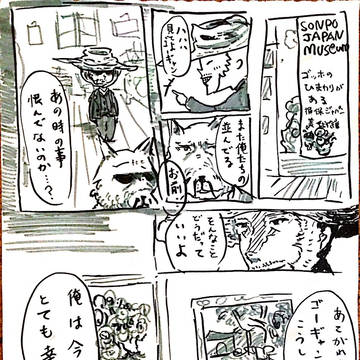 SONPO
JAPAN
MUSEUM
ゴッホの
ひまわりが
ある
損保ジャパン
美術館
ハハハ
見ろよ
また俺たちの
並んでる
あの時の事
恨んでないのか…?
お前
そんなこと
どうだって
いいよ
ゴーギャン
こうし
俺は今
とても幸